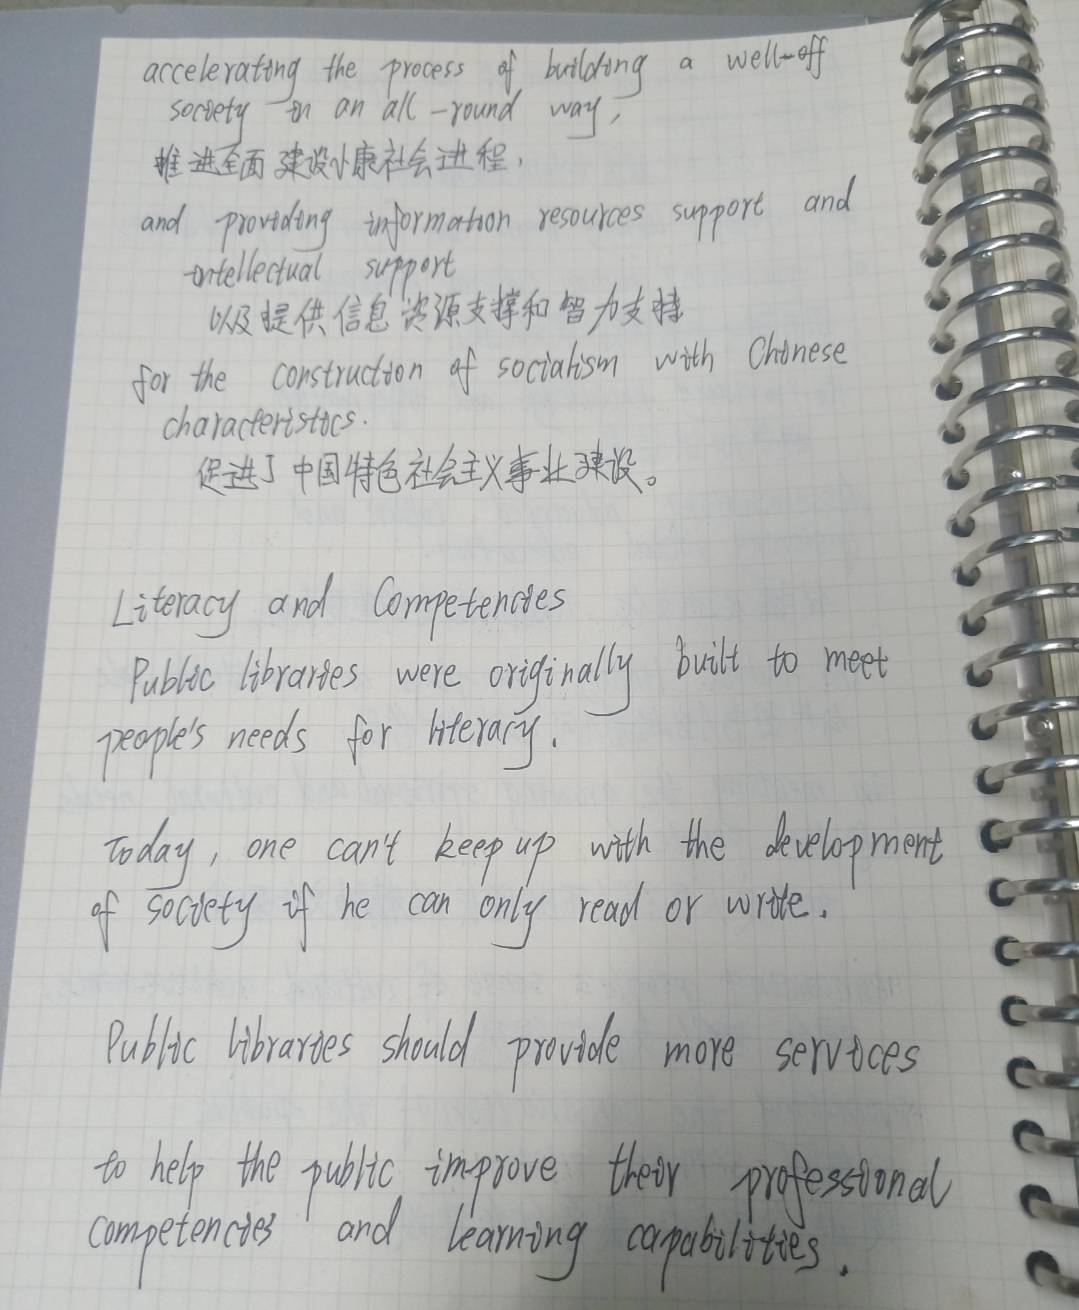 accelerating the process of building a well-off
society in an all-round way,
推进全面建设小康社会进程,
and providing information resources support and
intellectual support
以及提供信息资源支撑和智力支持
for the construction of socialism with Chinese
characteristics.
促进了中国特色社会主义事业建设。
Literacy and Competencies
Public libraries were originally built to meet
people's needs for literacy.
Today, one can't keep up with the development
of society if he can only read or write.
Public libraries should provide more services
to help the public improve their professional
competencies and learning capabilities.